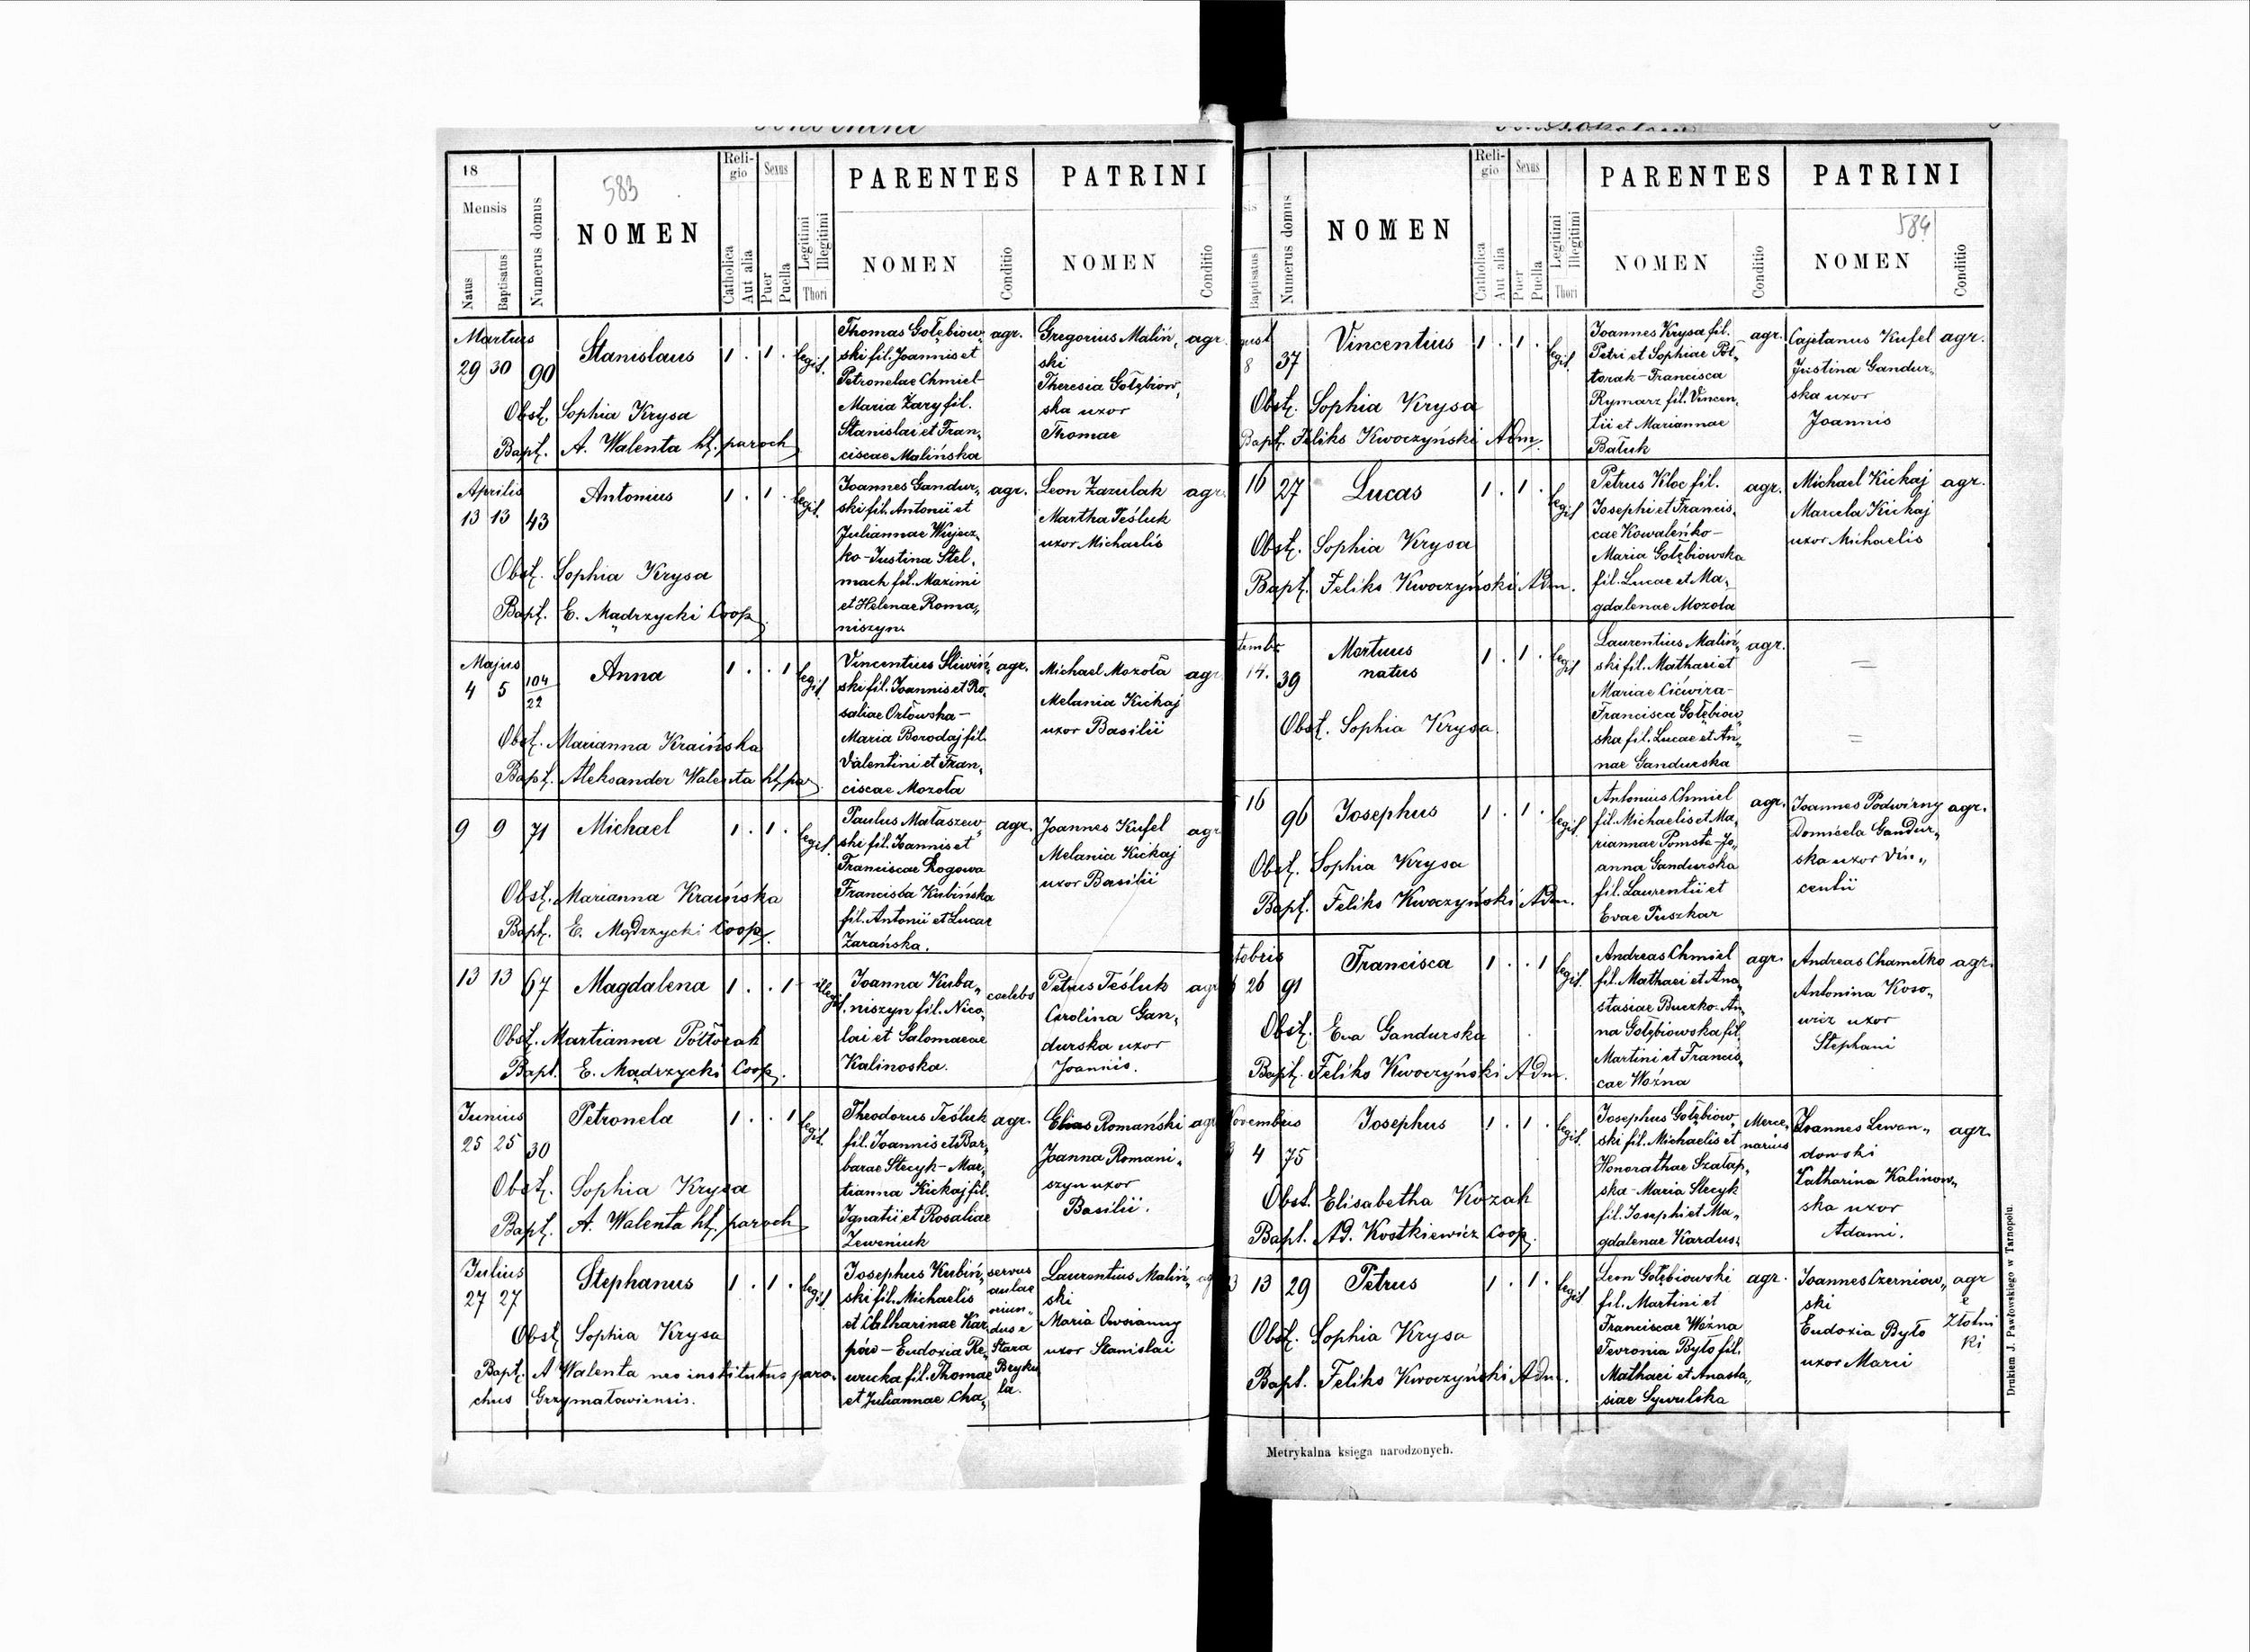 18
Mensis
Natus
Baptisatus
Numerus domus
583
NOMEN
Reli-
gio
Catholica
Aut alia
Sexus
Puer
Puella
Legitimi
Illegitimi
Thori
PARENTES
NOMEN
Conditio
PATRINI
NOMEN
Conditio
Martius
29 30 90 Stanislaus 1 . 1 . legit.
Obst. Sophia Krysa
Bapt. A. Walenta lt. paroch
Thomas Gołębiow„ agr.
ski fil. Joannis et
Petronelae Chmiel-
Maria Zary fil.
Stanislai et Fran„
ciscae Malińska
Gregorius Maliń„ agr.
ski
Theresia Gołębiow„
ska uxor
Thomae
Aprilis
13 13 43 Antonius 1 . 1 . legit.
Obst. Sophia Krysa
Bapt. E. Mądrzycki Coop.
Joannes Gandur„ agr.
ski fil. Antonii et
Juliannae Wujecz„
ko-Justina Stel„
mach fil. Maximi
et Helenae Roma„
niszyn.
Leon Zazulak agr.
Martha Teśluk
uxor Michaelis
Majus
4 5 104/22 Anna 1 . . 1 legit
Obst. Marianna Kraińska
Bapt. Aleksander Walenta lt. par.
Vincentius Sliwiń„ agr.
ski fil. Joannis et Ro„
saliae Orłowska-
Maria Borodaj fil.
Valentini et Fran„
ciscae Mozoła
Michael Mozoła agr
Melania Kickaj
uxor Basilii
9 9 71 Michael 1 . 1 . legit.
Obst. Marianna Kraińska
Bapt. E. Mądrzycki Coop.
Paulus Małaszew„ agr.
ski fil. Joannis et
Franciscae Rogowa
Francisca Kubińska
fil. Antonii et Lucae
Zarańska.
Joannes Kufel agr
Melania Kickaj
uxor Basilii
13 13 67 Magdalena 1 . . 1 illegit.
Obst. Martianna Półtorak
Bapt. E. Mądrzycki Coop.
Joanna Kuba„ coelebs
niszyn fil. Nico„
lai et Salomaeae
Kalinoska.
Petrus Teśluk agr
Carolina Gan„
durska uxor
Joannis.
Junius
25 25 30 Petronela 1 . . 1 legit.
Obst. Sophia Krysa
Bapt. A. Walenta lt. paroch
Theodorus Teśluk agr.
fil. Joannis et Bar„
barae Stecyk-Mar„
tianna Kickaj fil.
Ignatii et Rosaliae
Zeweniuk
Elias Romański agr
Joanna Romani„
szyn uxor
Basilii.
Julius
27 27 Stephanus 1 . 1 . legit
Obst. Sophia Krysa
Bapt. A Walenta neo institutus paro„
chus Grzymałowiensis.
Josephus Kubiń„
ski fil. Michaelis
et Catharinae Kar„
pów-Eudoxia Re„
wucka fil. Thomae
et Juliannae Cha„
servus
aulae
oriun„
dus e
Stara
Bryku
la.
Laurentius Maliń„ ag
ski
Maria Owsianny
uxor Stanislai
sis
Baptisatus
Numerus domus
NOMEN
Reli-
gio
Catholica
Aut alia
Sexus
Puer
Puella
Legitimi
Illegitimi
Thori
PARENTES
NOMEN
Conditio
PATRINI
584
NOMEN
Conditio
gust
8 37 Vincentius 1 . 1 . legit.
Obst. Sophia Krysa
Bapt. Feliks Kwoczyński Adm.
Joannes Krysa fil. agr.
Petri et Sophiae Pół„
torak-Francisca
Rymarz fil. Vincen„
tii et Mariannae
Bałuk
Cajetanus Kufel agr.
Justina Gandur„
ska uxor
Joannis
16 27 Lucas 1 . 1 . legit
Obst. Sophia Krysa
Bapt. Feliks Kwoczyński Adm.
Petrus Kloc fil. agr.
Josephi et Francis„
cae Kowaleńko-
Maria Gołębiowska
fil. Lucae et Ma„
gdalenae Mozoła
Michael Kickaj agr.
Marcela Kickaj
uxor Michaelis
tembr
14. 39 Mortuus 1 . 1 . legit
natus
Obst. Sophia Krysa.
Laurentius Maliń„ agr.
ski fil. Mathaei et
Mariae Cićwira-
Francisca Gołębiow„
ska fil. Lucae et An„
nae Gandurska
=
=
16 96 Josephus 1 . 1 . legit.
Obst. Sophia Krysa
Bapt. Feliks Kwoczyński Adm.
Antonius Chmiel agr.
fil. Michaelis et Ma„
riannae Pomsta-Jo„
anna Gandurska
fil. Laurentii et
Evae Puszkar
Joannes Podwirny agr.
Domicela Gandur„
ska uxor Vin„
centii
tobris
26 91 Francisca 1 . . 1 legit.
Obst. Eva Gandurska
Bapt. Feliks Kwoczyński Adm.
Andreas Chmiel agr.
fil. Mathaei et Ana„
stasiae Buczko-An„
na Gołębiowska fil.
Martini et Francis„
cae Woźna
Andreas Chamełko agr.
Antonina Koso„
wicz uxor
Stephani
Novembris
4 75 Josephus 1 . 1 . legit.
Obst. Elisabetha Kozak
Bapt. Ad. Kostkiewicz Coop.
Josephus Gołębiow„ Merce„
ski fil. Michaelis et narius
Honorathae Szałap„
ska-Maria Stecyk
fil. Josephi et Ma„
gdalenae Kardus.
Joannes Lewan„ agr.
dowski
Catharina Kalinow„
ska uxor
Adami.
13 29 Petrus 1 . 1 . legit
Obst. Sophia Krysa
Bapt. Feliks Kwoczyński Adm.
Leon Gołębiowski agr.
fil. Martini et
Franciscae Woźna
Fevronia Byto fil.
Mathaei et Anasta„
siae Sywulska
Joannes Czerniow„ agr
ski e
Eudoxia Byto Złotni
uxor Marci ki
Drukiem J. Pawłowskiego w Tarnopolu.
Metrykalna księga narodzonych.